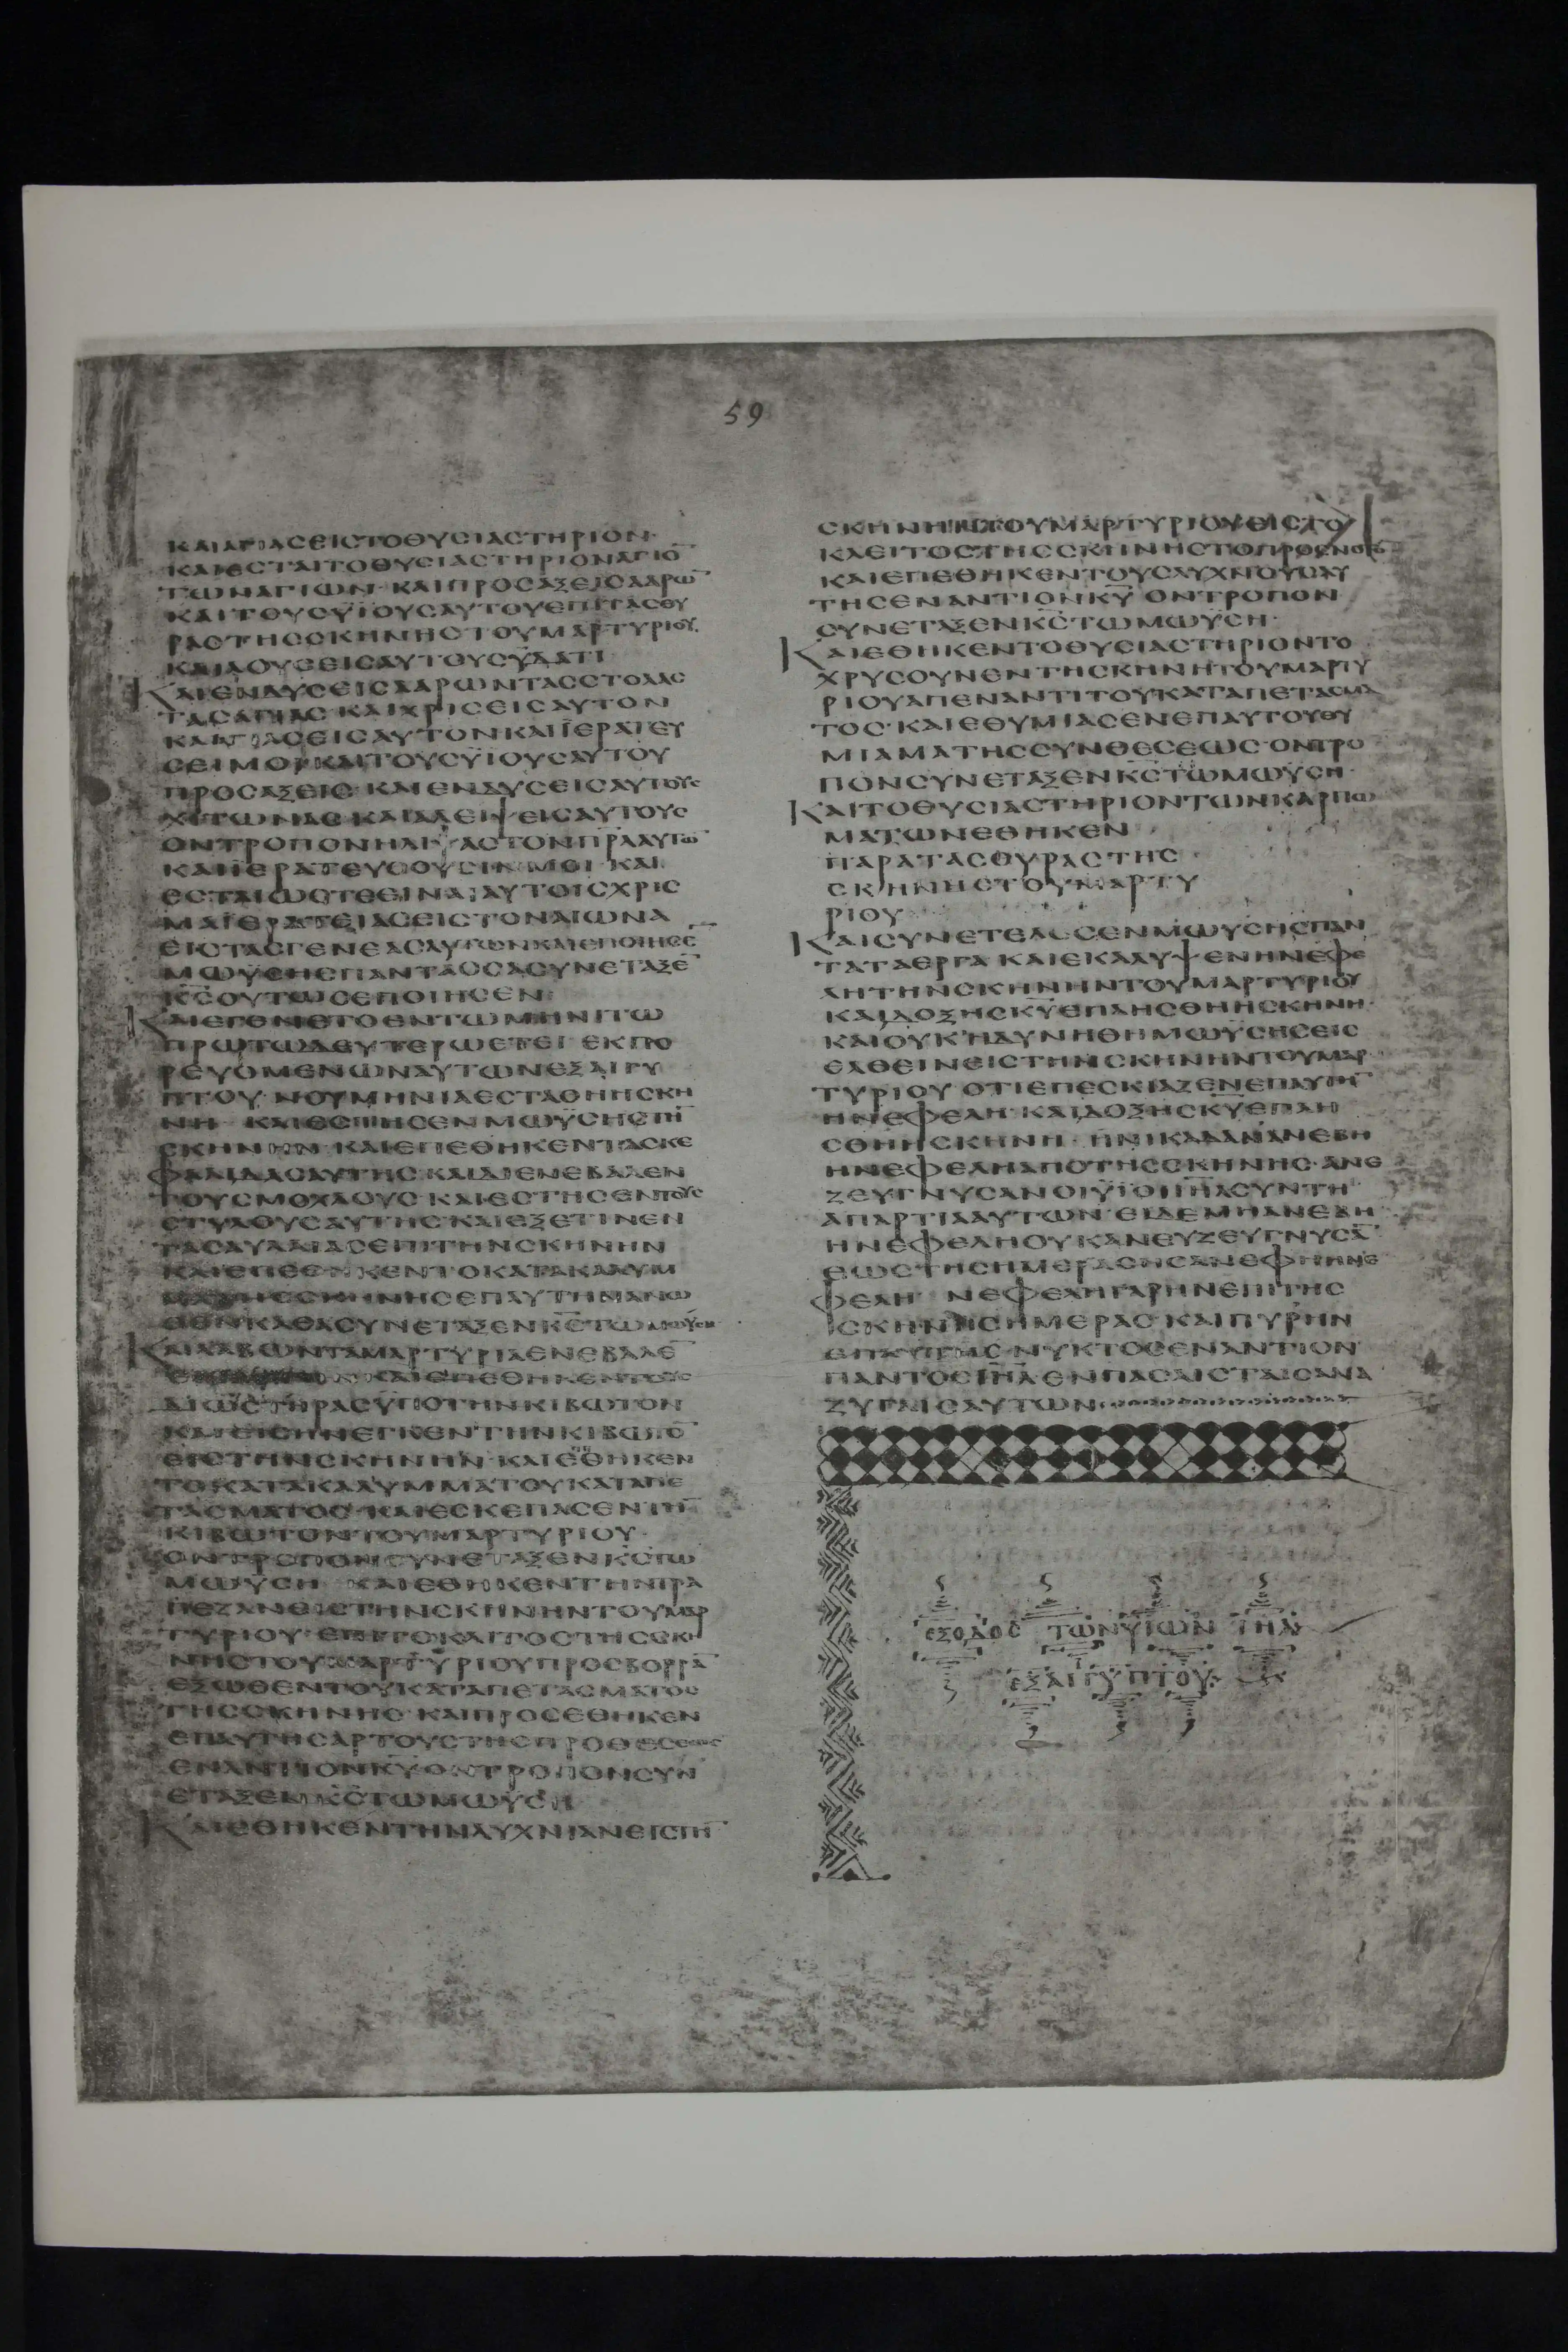 59
ΚΑΙΑΓΙΑСΕΙСΤΟΘΥСΙΑСΤΗΡΙΟΝ·
ΚΑΙΕСΤΑΙΤΟΘΥСΙΑСΤΗΡΙΟΝΑΓΙΟ̅
ΤΩΝΑΓΙΩΝ· ΚΑΙΠΡΟСΑΞΕΙСΑΑΡΩ̅
ΚΑΙΤΟΥСΥΪΟΥСΑΥΤΟΥΕΠΙΤΑСΘΥ
ΡΑСΤΗССΚΗΝΗСΤΟΥΜΑΡΤΥΡΙΟΥ·
ΚΑΙΛΟΥСΕΙСΑΥΤΟΥСΫΔΑΤΙ
ΚΑΙΕΝΔΥСΕΙСΑΑΡΩΝΤΑССΤΟΛΑС
ΤΑСΑΓΙΑС ΚΑΙΧΡΙСΕΙСΑΥΤΟΝ
ΚΑΙΑΓΙΑСΕΙСΑΥΤΟΝΚΑΙΪΕΡΑΤΕΥ
СΕΙΜΟΙ ΚΑΙΤΟΥСΥΪΟΥСΑΥΤΟΥ
ΠΡΟСΑΞΕΙС ΚΑΙΕΝΔΥСΕΙСΑΥΤΟΥС
ΧΙΤΩΝΑС ΚΑΙΑΛΕΙΨΕΙСΑΥΤΟΥС
ΟΝΤΡΟΠΟΝΗΛΙΨΑСΤΟΝΠ̅Ρ̅Α̅ΑΥΤΩ̅
ΚΑΙΪΕΡΑΤΕΥСΟΥСΙΝΜΟΙ ΚΑΙ
ΕСΤΑΙΩСΤΕΕΙΝΑΙΑΥΤΟΙСΧΡΙС
ΜΑΪΕΡΑΤΕΙΑСΕΙСΤΟΝΑΙΩΝΑ
ΕΙСΤΑСΓΕΝΕΑСΑΥΤΩΝΚΑΙΕΠΟΙΗСΕ̅
ΜΩΫСΗСΠΑΝΤΑΟСΑСΥΝΕΤΑΞΕ̅
Κ̅С̅ΟΥΤΩСΕΠΟΙΗСΕΝ
ΚΑΙΕΓΕΝΕΤΟΕΝΤΩΜΗΝΙΤΩ
ΠΡΩΤΩΔΕΥΤΕΡΩΕΤΕΙ ΕΚΠΟ
ΡΕΥΟΜΕΝΩΝΑΥΤΩΝΕΞΑΙΓΥ
ΠΤΟΥ ΝΟΥΜΗΝΙΑΕСΤΑΘΗΗСΚΗ
ΝΗ ΚΑΙΕСΤΗСΕΝΜΩΫСΗСΤΗ̅
СΚΗΝΗΝ ΚΑΙΕΠΕΘΗΚΕΝΤΑСΚΕ
ΦΑΛΙΔΑСΑΥΤΗС ΚΑΙΔΙΕΝΕΒΑΛΕΝ
ΤΟΥСΜΟΧΛΟΥС ΚΑΙΕСΤΗСΕΝΤΟΥС
СΤΥΛΟΥСΑΥΤΗС ΚΑΙΕΞΕΤΙΝΕΝ
ΤΑСΑΥΛΑΙΑСΕΠΙΤΗΝСΚΗΝΗΝ
ΚΑΙΕΠΕΘΗΚΕΝΤΟΚΑΤΑΚΑΛΥΜ
ΜΑΤΗССΚΗΝΗСΕΠΑΥΤΗΜΑΝΩ
ΘΕΝΚΑΘΑСΥΝΕΤΑΞΕΝΚ̅С̅ΤΩΜΩΫСΗ
ΚΑΙΛΑΒΩΝΤΑΜΑΡΤΥΡΙΑΕΝΕΒΑΛΕ̅
ΚΑΙΕΠΕΘΗΚΕΝΤΟΥС
ΔΙΩСΤΗΡΑСΫΠΟΤΗΝΚΙΒΩΤΟΝ
ΚΑΙΕΙСΗΝΕΓΚΕΝΤΗΝΚΙΒΩΤΟ̅
ΕΙСΤΗΝСΚΗΝΗΝ ΚΑΙΕΠΕΘΗΚΕΝ
ΤΟΚΑΤΑΚΑΛΥΜΜΑΤΟΥΚΑΤΑΠΕ
ΤΑСΜΑΤΟС ΚΑΙΕСΚΕΠΑСΕΝΤΗ̅
ΚΙΒΩΤΟΝΤΟΥΜΑΡΤΥΡΙΟΥ·
ΟΝΤΡΟΠΟΝСΥΝΕΤΑΞΕΝΚ̅С̅ΤΩ
ΜΩΫСΗ ΚΑΙΕΘΗΚΕΝΤΗΝΤΡΑ
ΠΕΖΑΝΕΙСΤΗΝСΚΗΝΗΝΤΟΥΜΑΡ
ΤΥΡΙΟΥ ΕΠΙΤΟΚΛΙΤΟСΤΗССΚΗ
ΝΗСΤΟΥΜΑΡΤΥΡΙΟΥΠΡΟСΒΟΡΡΑ̅
ΕΞΩΘΕΝΤΟΥΚΑΤΑΠΕΤΑСΜΑΤΟС
ΤΗССΚΗΝΗС ΚΑΙΠΡΟСΕΘΗΚΕΝ
ΕΠΑΥΤΗСΑΡΤΟΥСΤΗСΠΡΟΘΕСΕΩС
ΕΝΑΝΤΙΟΝΚ̅Υ̅ΟΝΤΡΟΠΟΝСΥΝ
ΕΤΑΞΕΝΚ̅С̅ΤΩΜΩΫСΗ
ΚΑΙΕΘΗΚΕΝΤΗΝΛΥΧΝΙΑΝΕΙСΤΗ̅
ΚΛΕΙΤΟСΤΗССΚΗΝΗСΤΟΠΡΟС
ΚΑΙΕΠΕΘΗΚΕΝΤΟΥСΛΥΧΝΟΥСΑΥ
ΤΗСΕΝΑΝΤΙΟΝΚ̅Υ̅ ΟΝΤΡΟΠΟΝ
СΥΝΕΤΑΞΕΝΚ̅С̅ΤΩΜΩΫСΗ·
ΚΑΙΕΘΗΚΕΝΤΟΘΥСΙΑСΤΗΡΙΟΝΤΟ
ΧΡΥСΟΥΝΕΝΤΗСΚΗΝΗΤΟΥΜΑΡΤΥ
ΡΙΟΥΑΠΕΝΑΝΤΙΤΟΥΚΑΤΑΠΕΤΑСΜΑ
ΤΟС· ΚΑΙΕΘΥΜΙΑСΕΝΕΠΑΥΤΟΥΘΥ
ΜΙΑΜΑΤΗССΥΝΘΕСΕΩС·ΟΝΤΡΟ
ΠΟΝСΥΝΕΤΑΞΕΝΚ̅С̅ΤΩΜΩΫСΗ·
ΚΑΙΤΟΘΥСΙΑСΤΗΡΙΟΝΤΩΝΚΑΡΠΩ
ΜΑΤΩΝΕΘΗΚΕΝ
ΠΑΡΑΤΑСΘΥΡΑСΤΗС
СΚΗΝΗСΤΟΥΜΑΡΤΥ
ΡΙΟΥ
ΚΑΙСΥΝΕΤΕΛΕСΕΝΜΩΫСΗСΠΑΝ
ΤΑΤΑΕΡΓΑ ΚΑΙΕΚΑΛΥΨΕΝΗΝΕΦΕ
ΛΗΤΗΝСΚΗΝΗΝΤΟΥΜΑΡΤΥΡΙΟΥ
ΚΑΙΔΟΞΗСΚ̅Υ̅ΕΠΛΗСΘΗΗСΚΗΝΗ·
ΚΑΙΟΥΚΗΔΥΝΗΘΗΜΩΫСΗСΕΙС
ΕΛΘΕΙΝΕΙСΤΗΝСΚΗΝΗΝΤΟΥΜΑΡ
ΤΥΡΙΟΥ ΟΤΙΕΠΕСΚΙΑΖΕΝΕΠΑΥΤΗ̅
ΗΝΕΦΕΛΗ· ΚΑΙΔΟΞΗСΚ̅Υ̅ΕΠΛΗ
СΘΗΗСΚΗΝΗ· ΗΝΙΚΑΔΑΝΑΝΕΒΗ
ΗΝΕΦΕΛΗΑΠΟΤΗССΚΗΝΗС·ΑΝΕ
ΖΕΥΓΝΥСΑΝΟΙΫΙΟΙΙ̅Η̅Λ̅СΥΝΤΗ
ΑΠΑΡΤΙΑΑΥΤΩΝ·ΕΙΔΕΜΗΑΝΕΒΗ
ΗΝΕΦΕΛΗΟΥΚΑΝΕΥΖΕΥΓΝΥСΑ̅
ΕΩСΤΗСΗΜΕΡΑСΗСΑΝΕΦΗΗΝΕ
ΦΕΛΗ ΝΕΦΕΛΗΓΑΡΗΝΕΠΙΤΗС
СΚΗΝΗСΗΜΕΡΑС ΚΑΙΠΥΡΗΝ
ΕΠΑΥΤΗСΝΥΚΤΟСΕΝΑΝΤΙΟΝ
ΠΑΝΤΟСΙ̅Η̅Λ̅ΕΝΠΑСΑΙСΤΑΙСΑΝΑ
ΖΥΓΑΙСΑΥΤΩΝ
ΕΞΟΔΟС ΤΩΝΥΙΩΝ Ι̅Η̅Λ̅
ΕΞΑΙΓΥΠΤΟΥ·